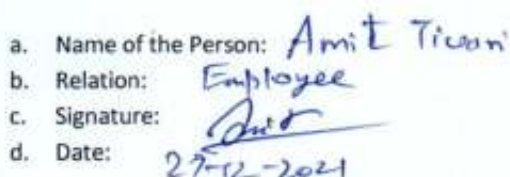 a. Name of the Person: Amit Tiwari
b. Relation: Employee
c. Signature: Amit
d. Date: 27-12-2021